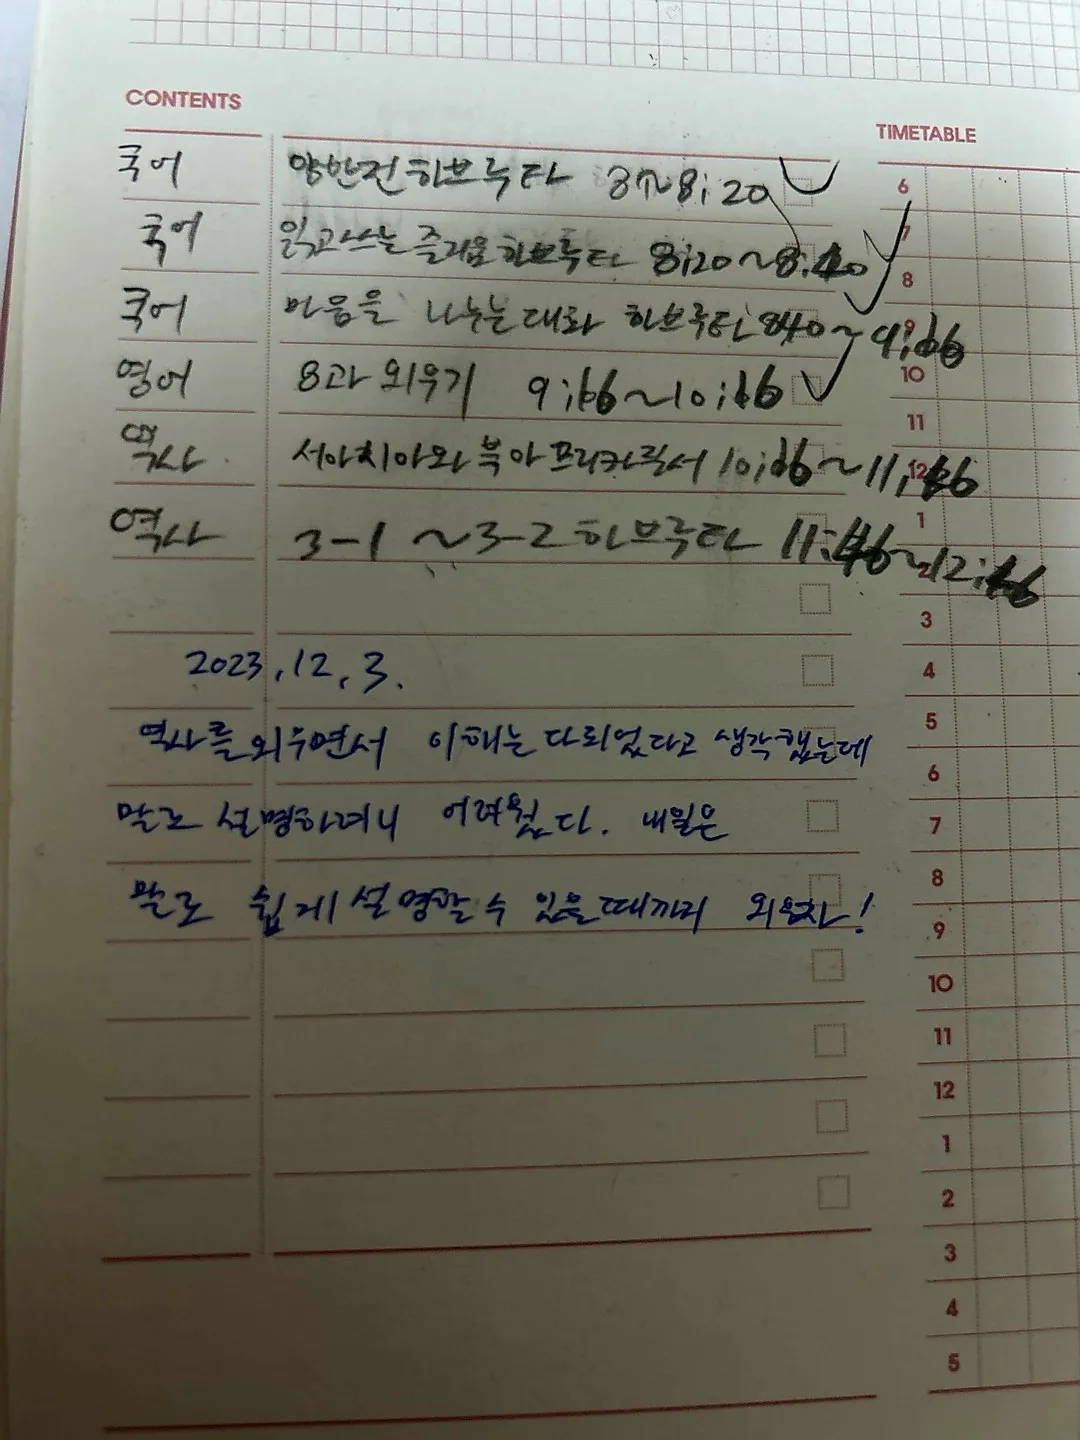 CONTENTS
TIMETABLE
국어 양반전 하브루타 8시~8:20
국어 읽고 쓰는 즐거움 하브루타 8:20~8:40
국어 마음을 나누는 대화 하브루타 840~9:
영어 8과 외우기
역사 서아시아와 북아프리카
역사 3-1 ~3-2 하브루타
2023, 12, 3.
역사를 외우면서 이해는 다 되었다고 생각했는데
말로 설명하려니 어려웠다. 내일은
말로 쉽게 설명할 수 있을 때까지 외우자!
6
7
8
9
10
11
12
1
2
3
4
5
6
7
8
9
10
11
12
1
2
3
4
5